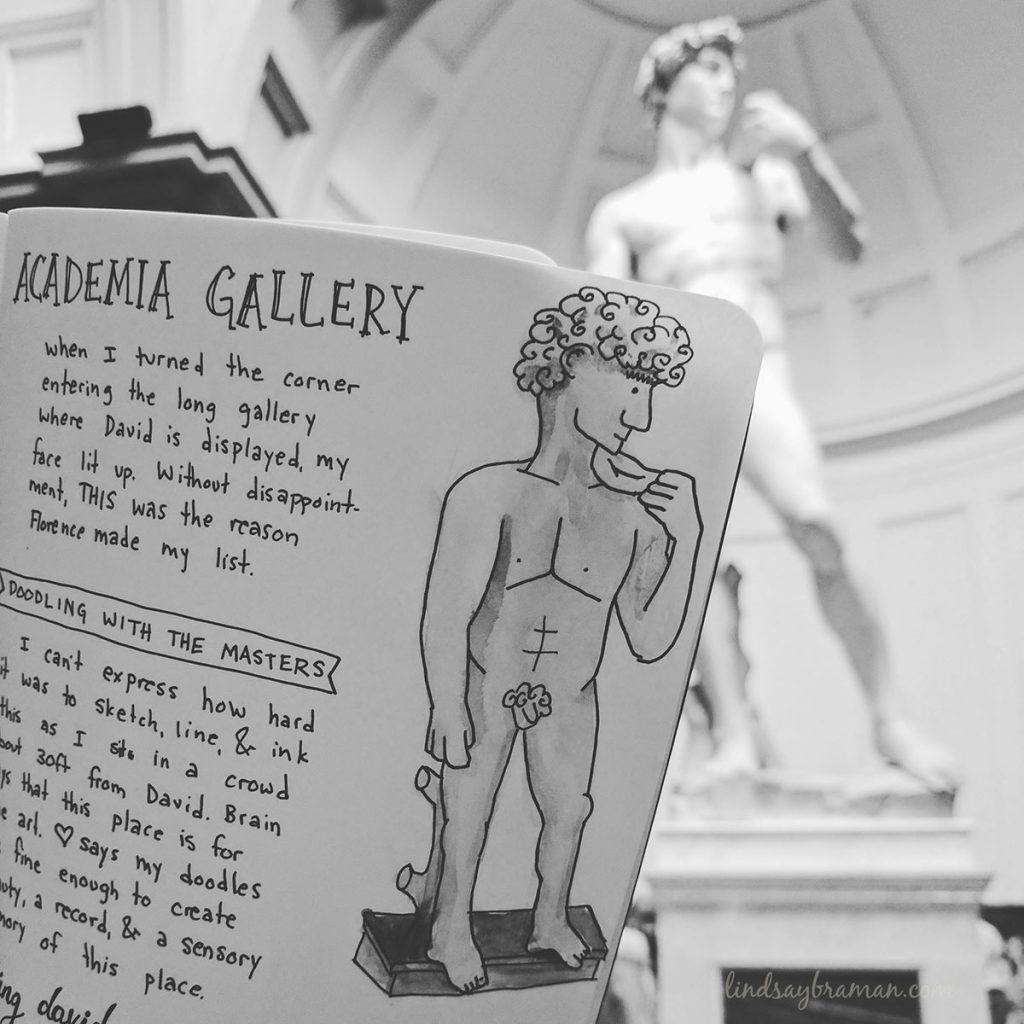 ACADEMIA GALLERY
when I turned the corner
entering the long gallery
where David is displayed, my
face lit up. Without disappoint-
ment, THIS was the reason
Florence made my list.
DOODLING WITH THE MASTERS
I can't express how hard
it was to sketch, line, & ink
this as I sit in a crowd
30ft from David. Brain
that this place is for
art. ♡ says my doodles
fine enough to create
a record, & a sensory
of this place.
david
lindsaybraman.com